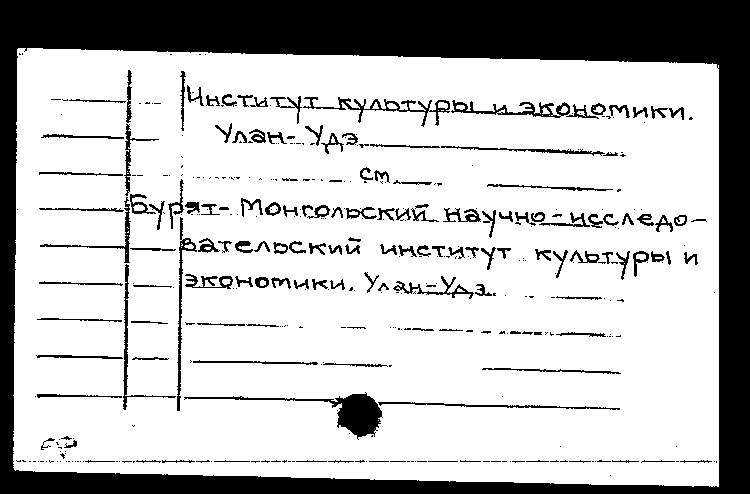 Институт культуры и экономики.
Улан-Удэ
см.
Бурят-Монгольский научно-исследо-
вательский институт культуры и
экономики. Улан-Удэ.